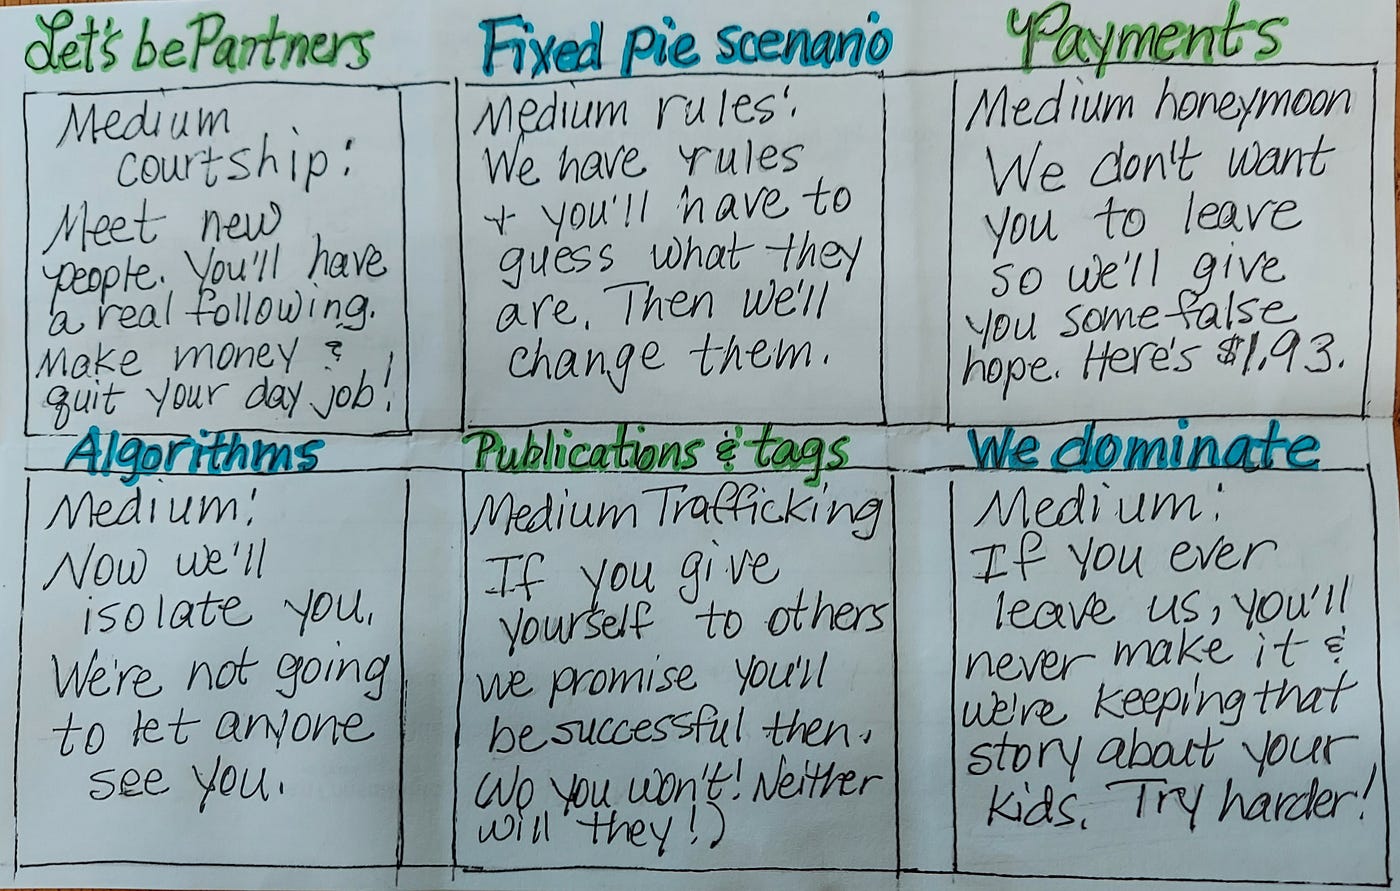 Let's be Partners
Medium
courtship:
Meet new
people. You'll have
a real following.
Make money &
quit your day job!
Fixed pie scenario
Medium rules:
We have rules
+ you'll have to
guess what they
are. Then we'll
change them.
Payments
Medium honeymoon
We don't want
you to leave
so we'll give
you some false
hope. Here's $1.93.
Algorithms
Medium:
Now we'll
isolate you.
We're not going
to let anyone
see you.
Publications & tags
Medium Trafficking
If you give
yourself to others
we promise you'll
be successful then.
(No you won't! Neither
will they!)
We dominate
Medium:
If you ever
leave us, you'll
never make it &
we're keeping that
story about your
kids. Try harder!